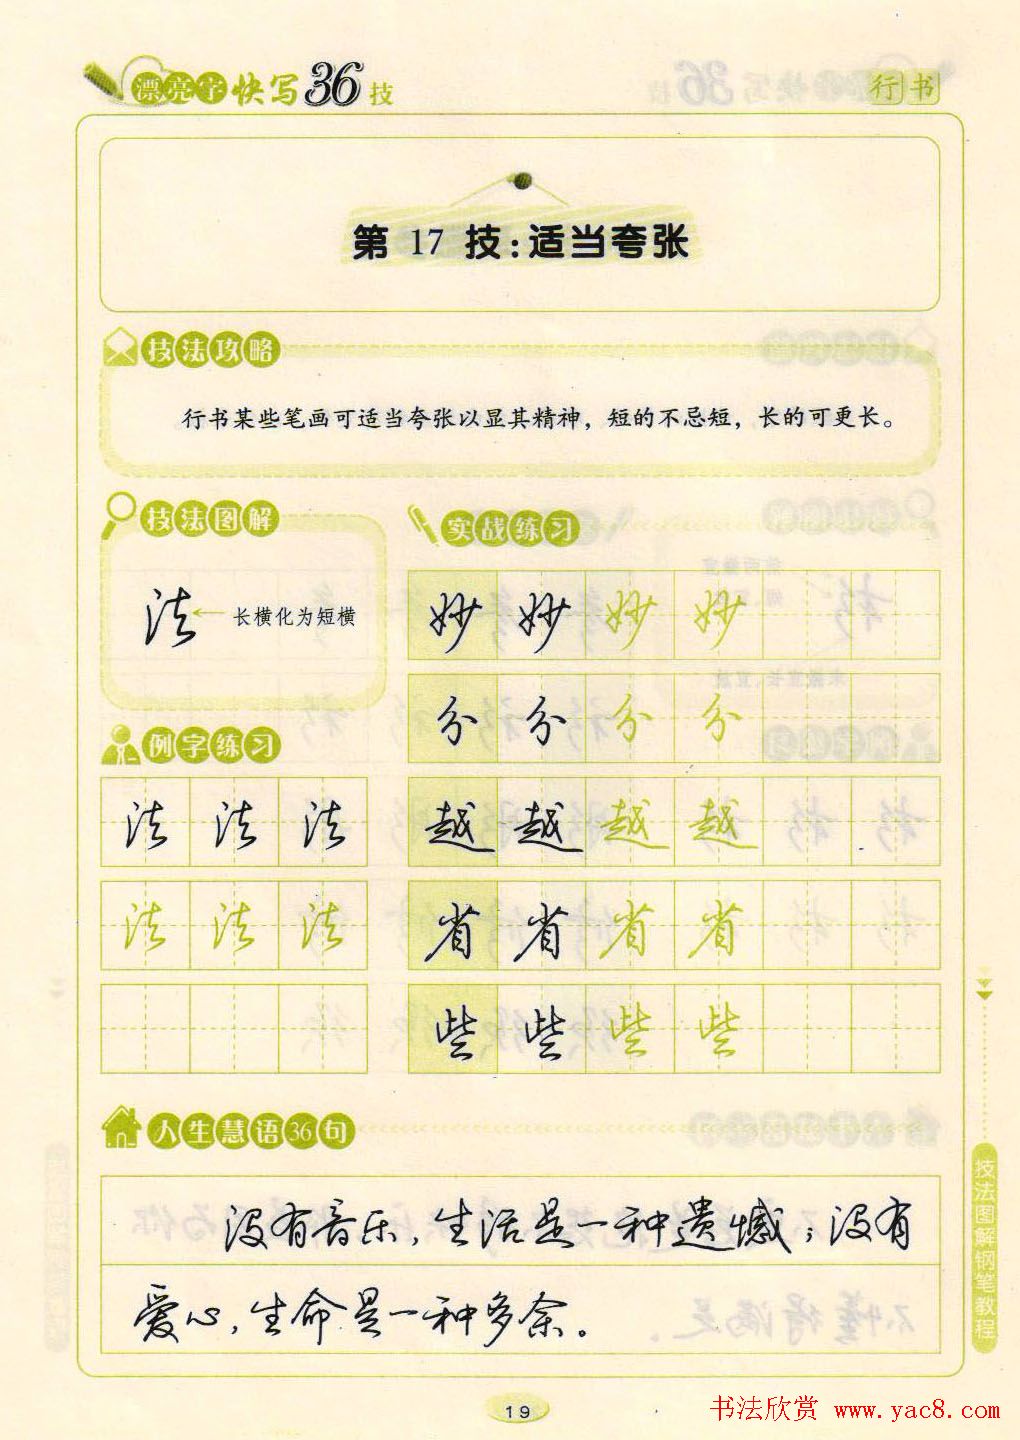 漂亮字快写36技
行书
第 17 技：适当夸张
技法攻略
行书某些笔画可适当夸张以显其精神，短的不忌短，长的可更长。
技法图解
法 ← 长横化为短横
例字练习
法 法 法
法 法 法
实战练习
妙 妙 妙 妙
分 分 分 分
越 越 越 越
省 省 省 省
些 些 些 些
人生慧语36句
没有音乐，生活是一种遗憾；没有
爱心，生命是一种多余。
技法图解钢笔教程
19
书法欣赏 www.yac8.com